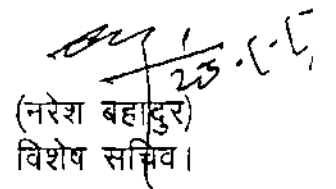 (नरेश बहादुर)
विशेष सचिव।